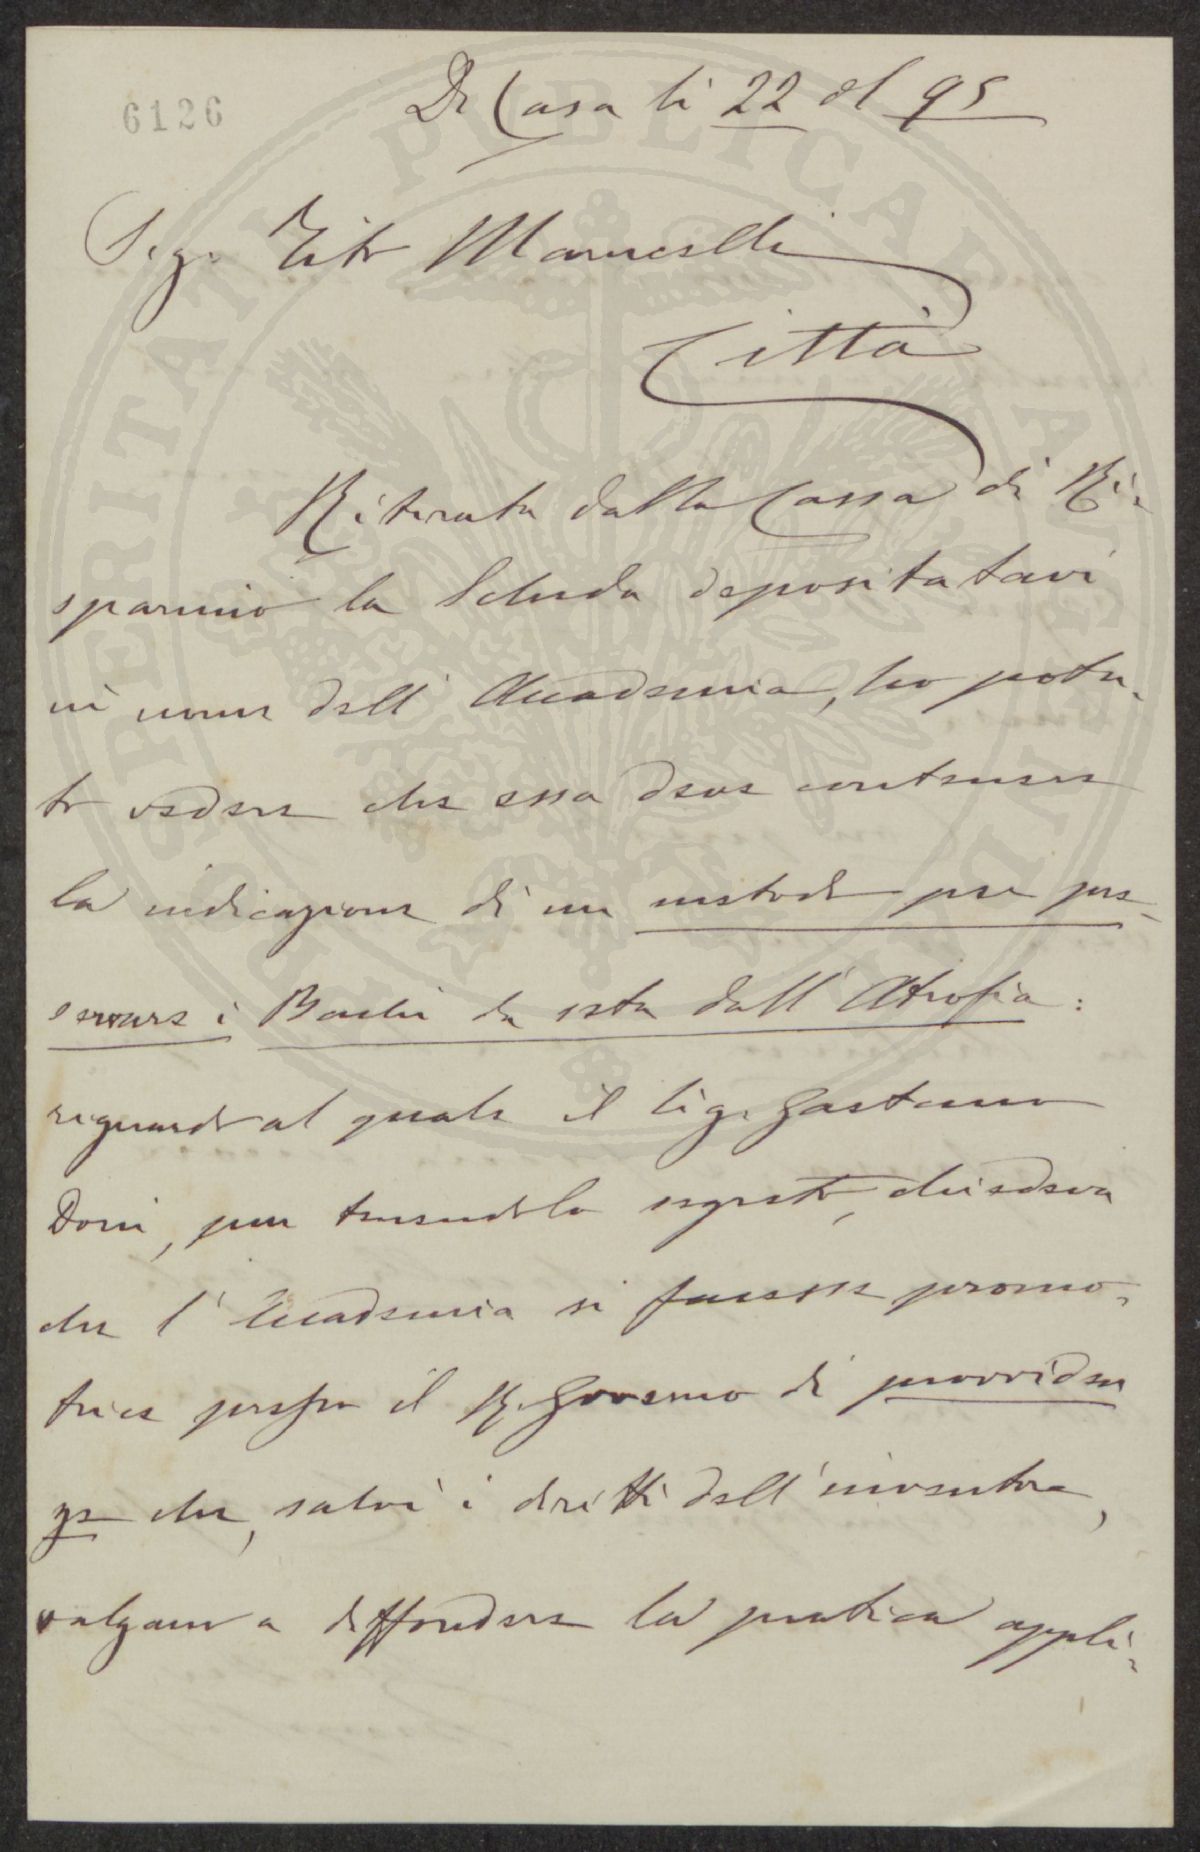 6126
Di Casa lì 22 del 95
Sig. Tito Marucelli
Città
Ritirata dalla Cassa di Ri-
sparmio la Scheda depositatavi
in nome dell' Accademia, ho potu-
to vedere che essa deve contenere
la indicazione di un metodo per pre-
servare i Bachi da seta dall' Atrofia:
riguardo al quale il Sig. Gaetano
Doni, pur tenendolo segreto, chiedeva
che l' Accademia si facesse promo-
trice presso il R. Governo di provviden
ze che, salvi i diritti dell' inventore,
valgano a diffondere la pratica appli-
PROSPERITATI PUBLICAE AUGENDAE